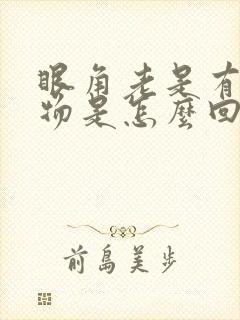 眼角老是有
物是怎麼回
前島美步